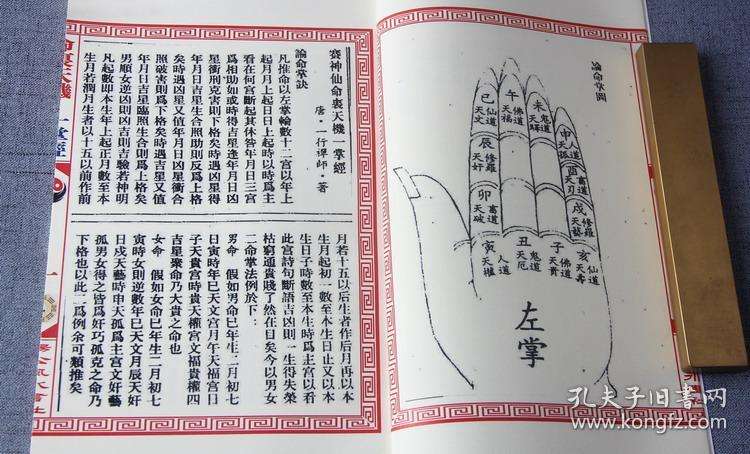 論命掌圖
申 人道 天孤
酉 畜道 天刃
戌 修羅 天藝
亥 仙道 天壽
未 鬼道 天驛
午 佛道 天福
巳 仙道 天文
辰 修羅 天奸
卯 畜道 天破
寅 人道 天權
丑 鬼道 天厄
子 佛道 天貴
左掌
賽神仙命裏天機一掌經
唐·一行禪師·著
論命掌訣
凡推命以左掌輪數十二宮以年上
起月月上起日日上起時以時爲主
看在何宮斷起其休咎年月日三宮
爲相助如或時得吉星逢年月日凶
星衝刑克害則下格矣時遇凶星得
年月日吉星生合照助則反爲上格
矣時遇凶星又值年月日凶星衝合
照破害則爲下格矣時遇吉星又值
年月日吉星臨照生合則爲上格矣
男順女逆凶則凶吉則吉驗若神明
凡起數即本生年上起正月數至本
生月若潤月生者以十五以前作前
月若十五以后生者作后月再以本
生月起初一數至本生日止又以本
生日子時數至本生時爲主宮以看
此宮詩句斷語吉凶則一生得失榮
枯窮通貴賤了然在目矣今以男女
二命掌法例於下:
男命 假如男命巳年生二月初七
日寅時年巳天文宮月午天福宮日
子天貴宮時貴天權宮文福貴權四
吉星聚命乃大貴之命也
女命 假如女命巳年生二月初七
寅時女則逆數年巳天文月辰天奸
日戌天藝時申天孤爲主宮文奸藝
孤男女得之皆爲奸巧孤克之命乃
下格也以此二爲例余可類推矣
天機一掌經
一
孔夫子旧书网
www.kongfz.com